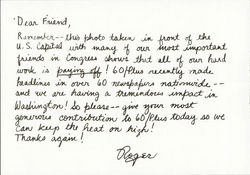 Dear Friend,
Remember-- this photo taken in front of the
U.S. Capitol with many of our most important
friends in Congress shows that all of our hard
work is paying off! 60/Plus recently made
headlines in over 60 newspapers nationwide--
and we are having a tremendous impact in
Washington! So please-- give your most
generous contribution to 60/Plus today so we
can keep the heat on high!
Thanks again!
Roger